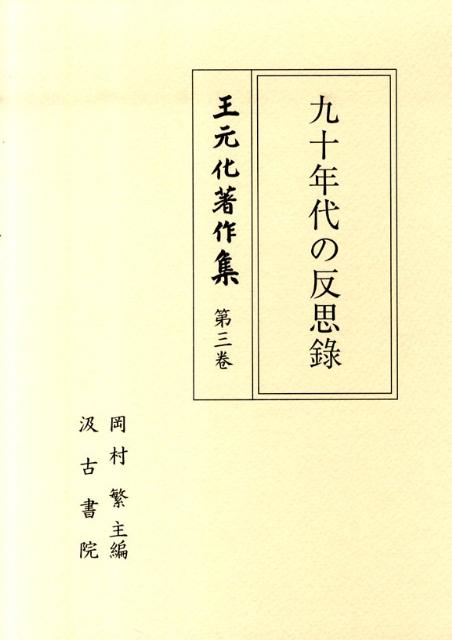 九十年代の反思錄
王元化著作集 第三卷
岡村 繁 主編
汲古書院